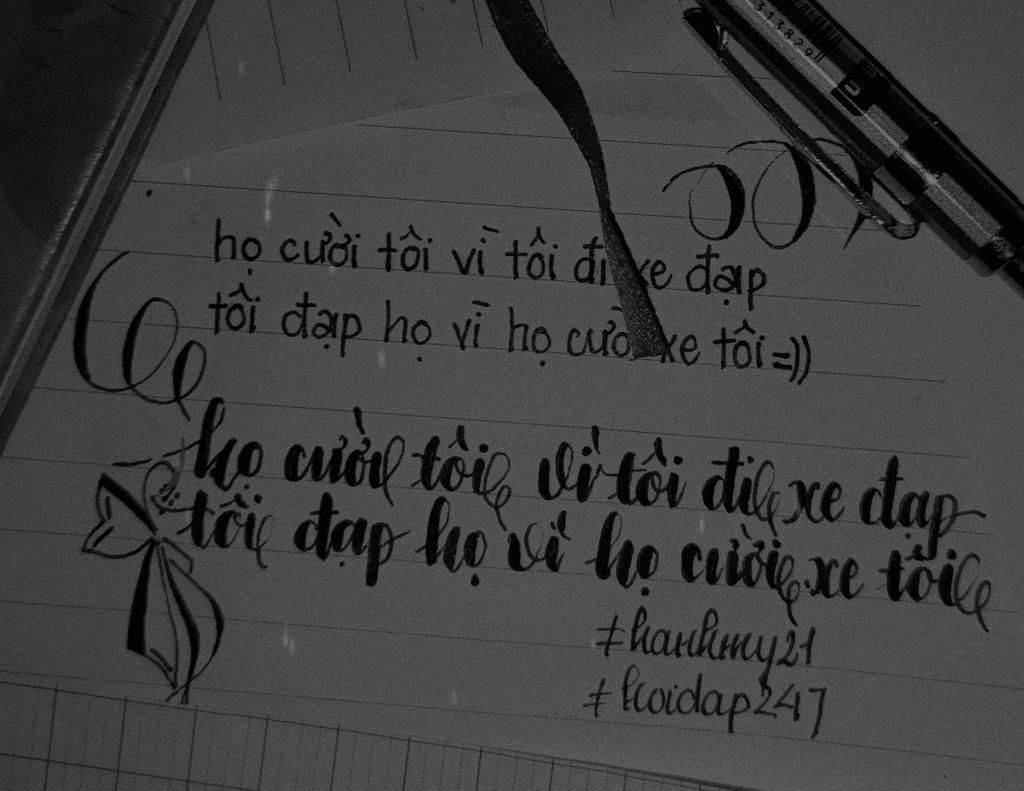 họ cười tôi vì tôi đi xe đạp
tôi đạp họ vì họ cười xe tôi =))
họ cười tôi vì tôi đi xe đạp
tôi đạp họ vì họ cười xe tôi
#hanhmy21
#koidap247